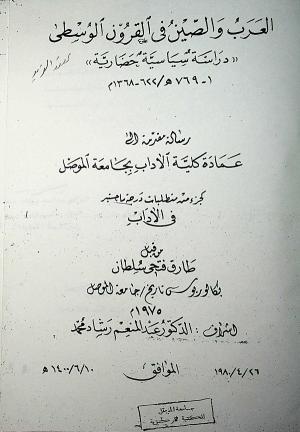 العرب والصين في القرون الوسطى
«دراسة سياسية حضارية»
١ - ٧٦٩ هـ / ٦٢٢ - ١٣٦٨ م
رسالة مقدمة الى
عمادة كلية الآداب بجامعة الموصل
كجزء من متطلبات درجة ماجستير
في الآداب
من قبل
طارق فتحي سلطان
بكالوريوس تاريخ / جامعة الموصل
١٩٧٥ م
اشراف : الدكتور عبد المنعم رشاد محمد
١٩٨٠/٤/٢٦ الموافق ١٤٠٠/٦/١٠ هـ
جامعة الموصل
المكتبة المركزية